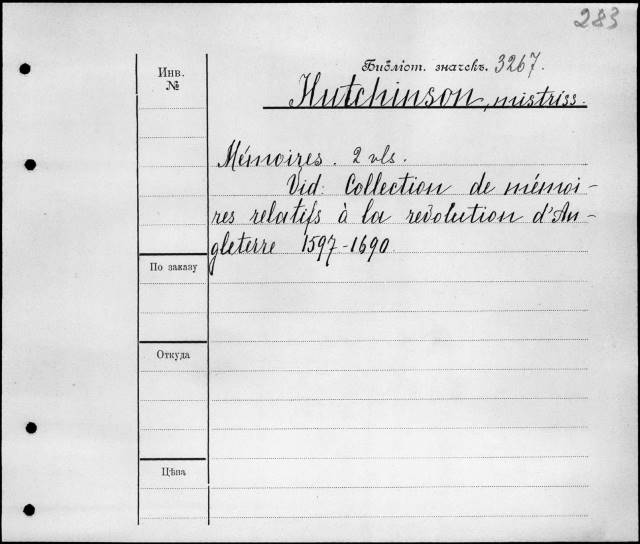 283
Инв.
№
Библіот. значекъ. 3267.
Hutchinson, mistriss.
Mémoires. 2 vls.
Vid: Collection de mémoi-
res relatifs à la révolution d'An-
gleterre 1597-1690
По заказу
Откуда
Цѣна